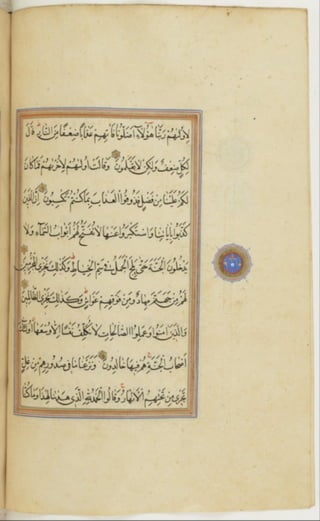 لِأُولٰهُمْ رَبَّنَا هٰؤُلَاءِ اَضَلُّونَا فَاٰتِهِمْ عَذَابًا ضِعْفًا مِنَ النَّارِ قَالَ
لِكُلٍّ ضِعْفٌ وَلٰكِنْ لَا تَعْلَمُونَ وَقَالَتْ اُولٰهُمْ لِاُخْرٰهُمْ فَمَا كَانَ
لَكُمْ عَلَيْنَا مِنْ فَضْلٍ فَذُوقُوا الْعَذَابَ بِمَا كُنْتُمْ تَكْسِبُونَ اِنَّ الَّذِينَ
كَذَّبُوا بِاٰيَاتِنَا وَاسْتَكْبَرُوا عَنْهَا لَا تُفَتَّحُ لَهُمْ اَبْوَابُ السَّمَاءِ وَلَا
يَدْخُلُونَ الْجَنَّةَ حَتّٰى يَلِجَ الْجَمَلُ فِي سَمِّ الْخِيَاطِ وَكَذٰلِكَ نَجْزِي الْمُجْرِمِينَ
لَهُمْ مِنْ جَهَنَّمَ مِهَادٌ وَمِنْ فَوْقِهِمْ غَوَاشٍ وَكَذٰلِكَ نَجْزِي الظَّالِمِينَ
وَالَّذِينَ اٰمَنُوا وَعَمِلُوا الصَّالِحَاتِ لَا نُكَلِّفُ نَفْسًا اِلَّا وُسْعَهَا اُولٰئِكَ
اَصْحَابُ الْجَنَّةِ هُمْ فِيهَا خَالِدُونَ وَنَزَعْنَا مَا فِي صُدُورِهِمْ مِنْ غِلٍّ
تَجْرِي مِنْ تَحْتِهِمُ الْاَنْهَارُ وَقَالُوا الْحَمْدُ لِلّٰهِ الَّذِي هَدٰينَا لِهٰذَا وَمَا كُنَّا